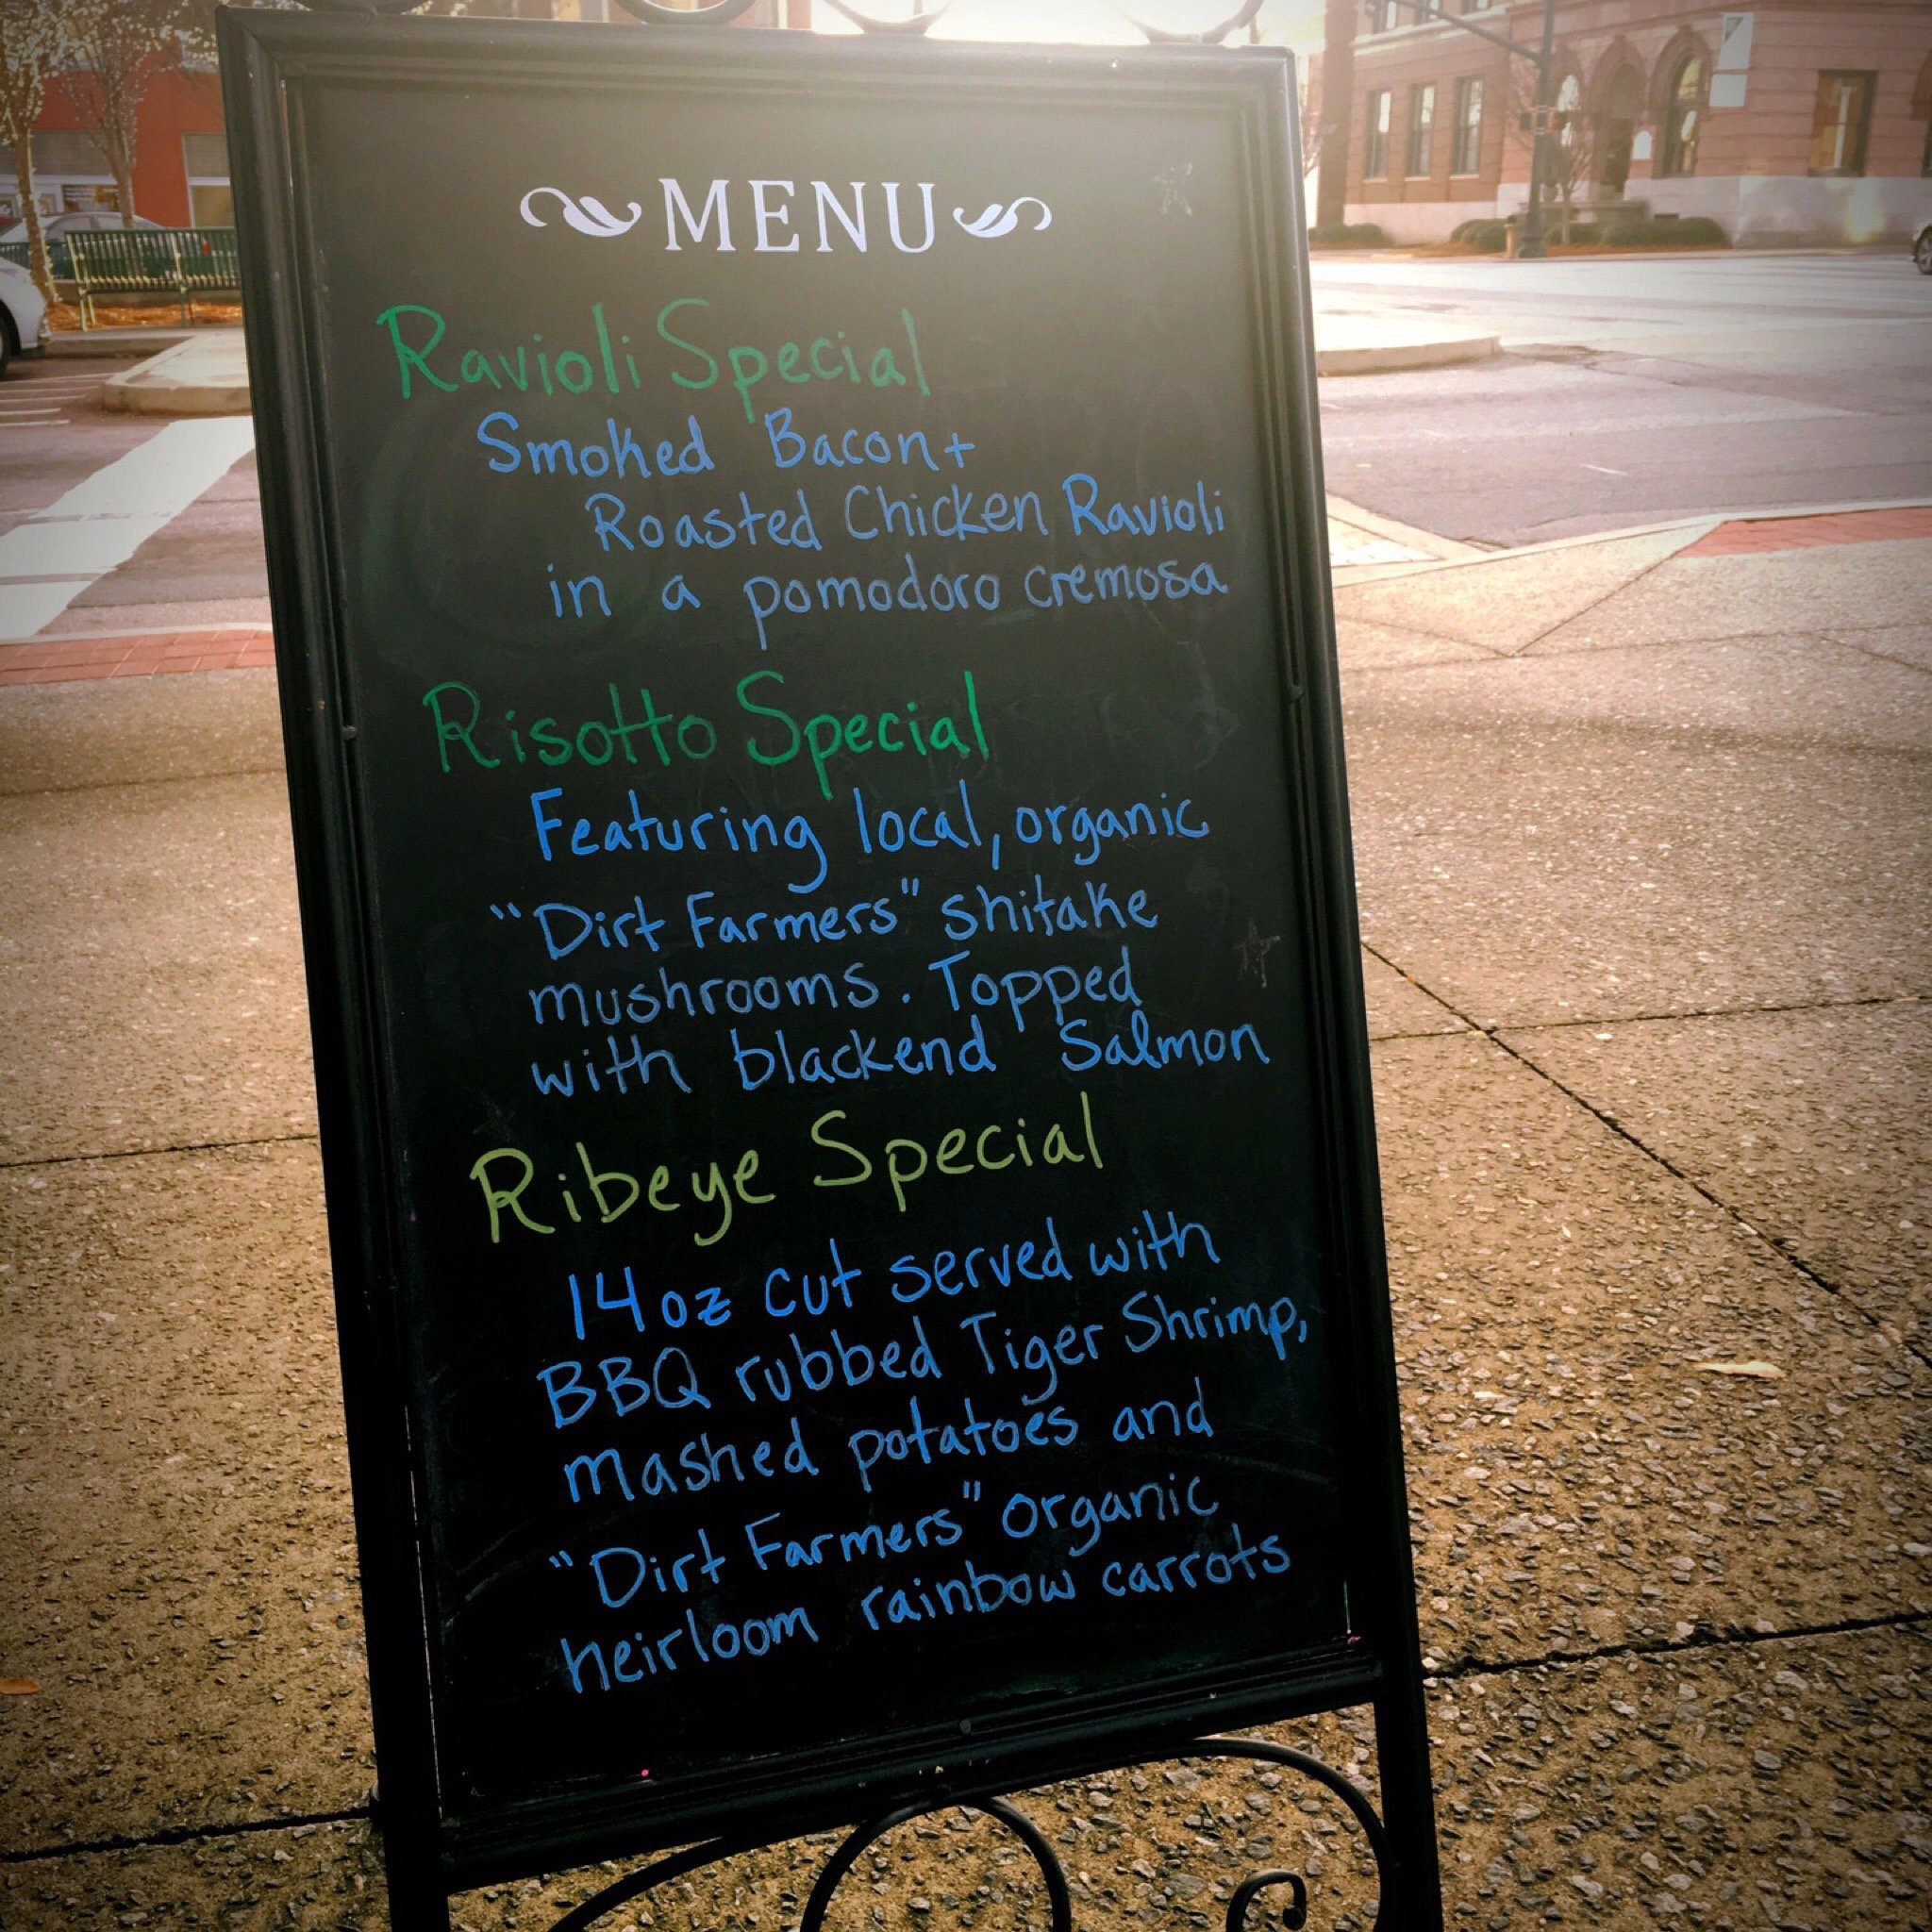 MENU
Ravioli Special
Smoked Bacon +
Roasted Chicken Ravioli
in a pomodoro cremosa
Risotto Special
Featuring local, organic
"Dirt Farmers" shitake
mushrooms. Topped
with blackend Salmon
Ribeye Special
14oz cut served with
BBQ rubbed Tiger Shrimp,
mashed potatoes and
"Dirt Farmers" organic
heirloom rainbow carrots